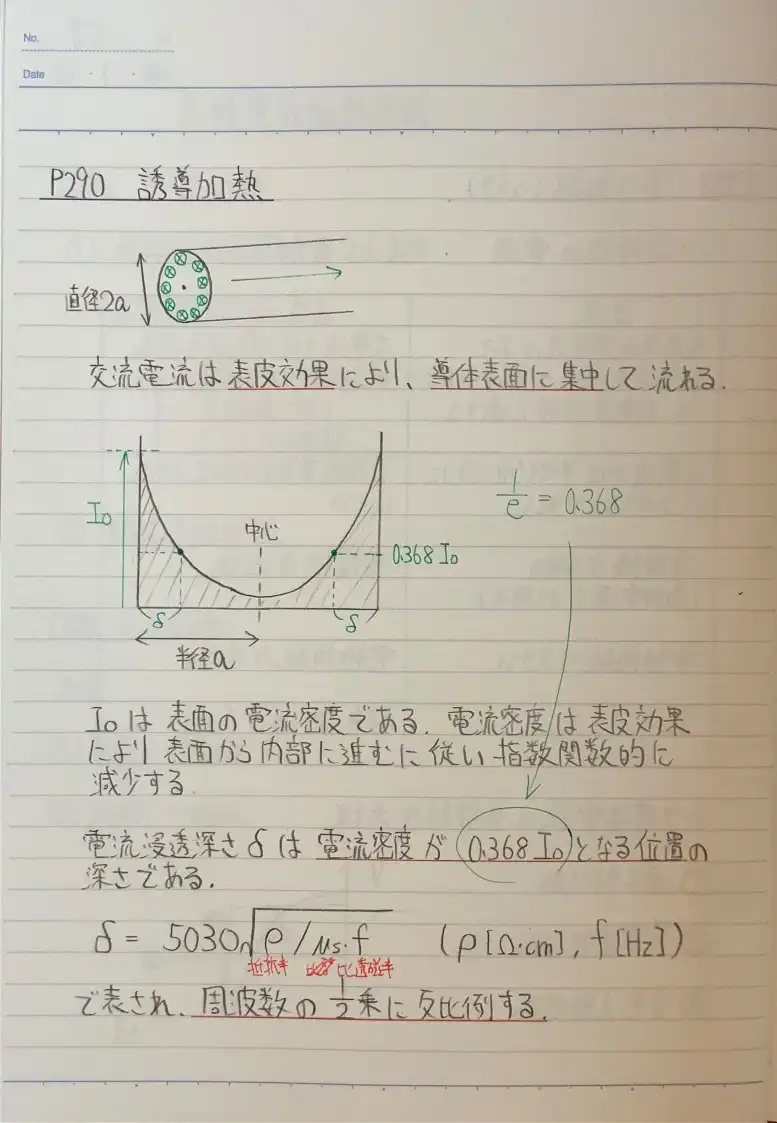 No.
Date
P290 誘導加熱
直径2a
交流電流は表皮効果により、導体表面に集中して流れる.
I₀
中心
1/e = 0.368
0.368 I₀
δ
δ
半径a
I₀は表面の電流密度である. 電流密度は表皮効果
により表面から内部に進むに従い指数関数的に
減少する
電流浸透深さδは電流密度が 0.368 I₀ となる位置の
深さである.
δ = 5030√ρ/μs·f (ρ[Ω·cm], f[Hz])
抵抗率 比透磁率
で表され、周波数の1/2乗に反比例する.